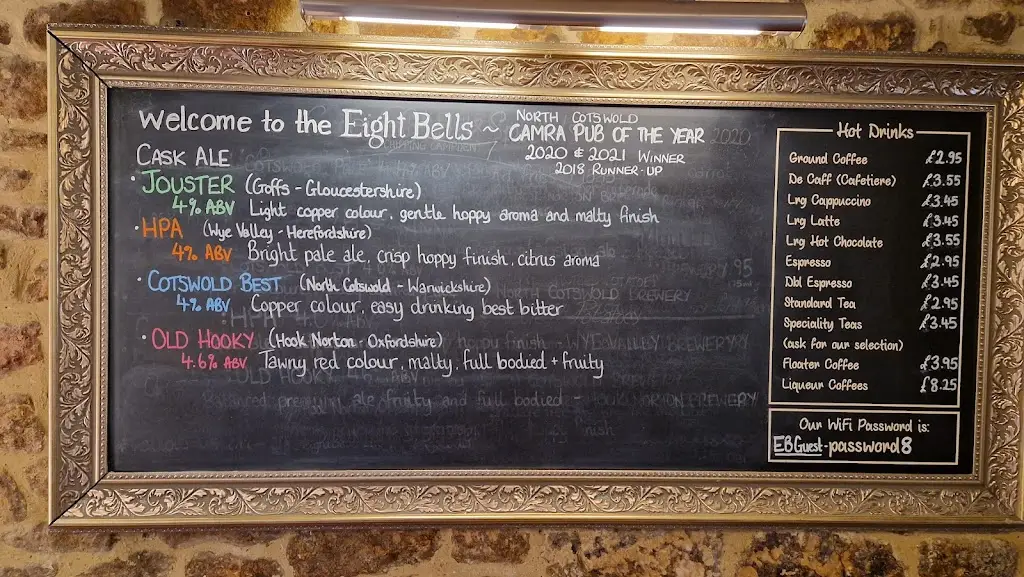 Welcome to the Eight Bells ~ NORTH COTSWOLD
CAMRA PUB OF THE YEAR 2020
2020 & 2021 WINNER
2018 RUNNER-UP
CASK ALE
· JOUSTER (Goffs - Gloucestershire)
4% ABV Light copper colour, gentle hoppy aroma and malty finish
· HPA (Wye Valley - Herefordshire)
4% ABV Bright pale ale, crisp hoppy finish, citrus aroma
· COTSWOLD BEST (North Cotswold - Warwickshire)
4% ABV Copper colour, easy drinking best bitter
· OLD HOOKY (Hook Norton - Oxfordshire)
4.6% ABV Tawny red colour, malty, full bodied + fruity
Balanced premium ale fruity and full bodied - HOOK NORTON BREWERY
Hot Drinks
Ground Coffee £2.95
De Caff (Cafetiere) £3.55
Lrg Cappuccino £3.45
Lrg Latte £3.45
Lrg Hot Chocolate £3.55
Espresso £2.95
Dbl Espresso £3.45
Standard Tea £2.95
Speciality Teas £3.45
(ask for our selection)
Floater Coffee £3.95
Liqueur Coffees £8.25
Our WiFi Password is:
EBGuest-password8